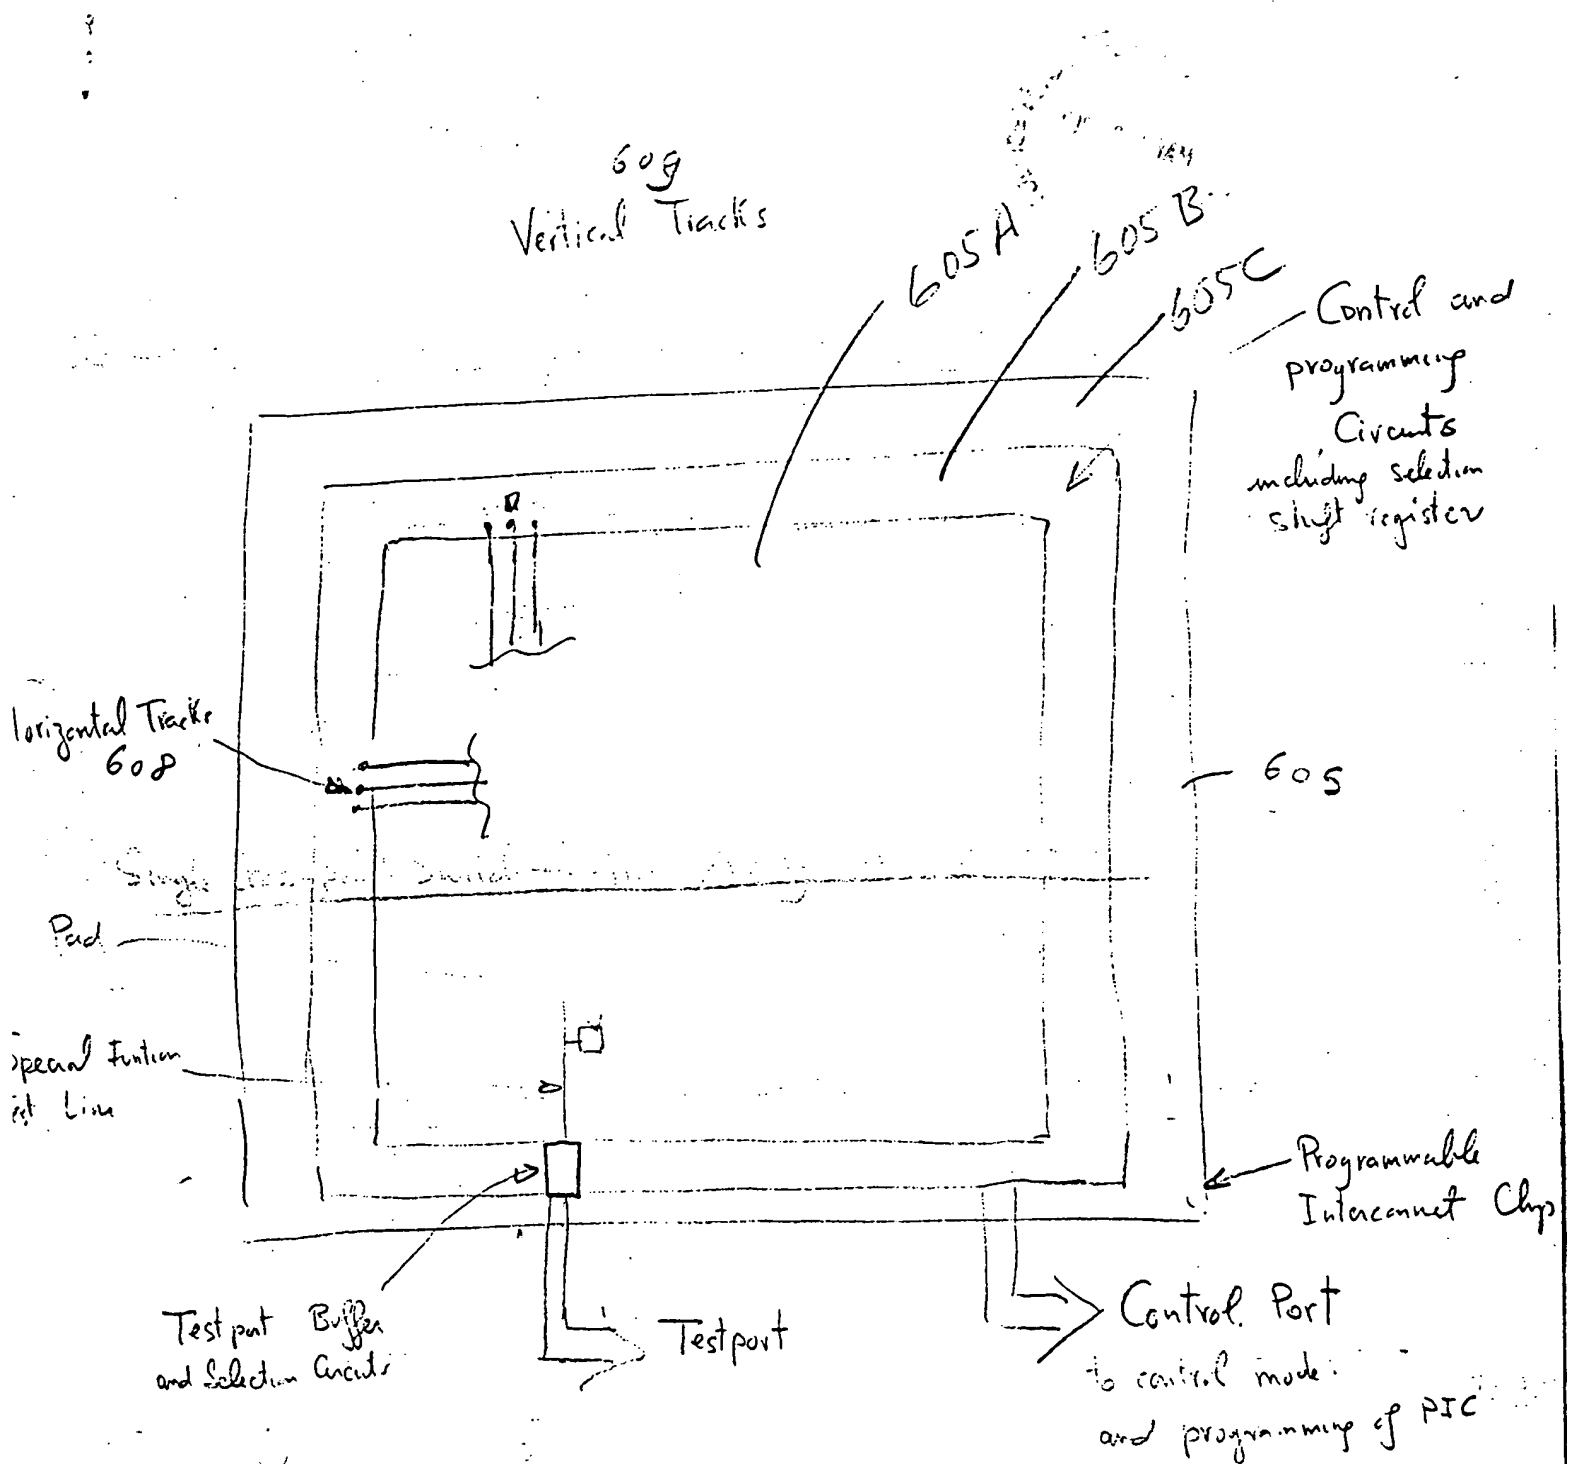 609
Vertical Tracks
605A
605B
605C
Control and
programming
Circuits
including selection
shift register
lorizontal Tracks
608
605
Single
Pad
pecial Funtion
est Line
Programmable
Interconnet Chip
Testport Buffer
and Selection Circuits
Testport
Control Port
to control mode
and programming of PIC